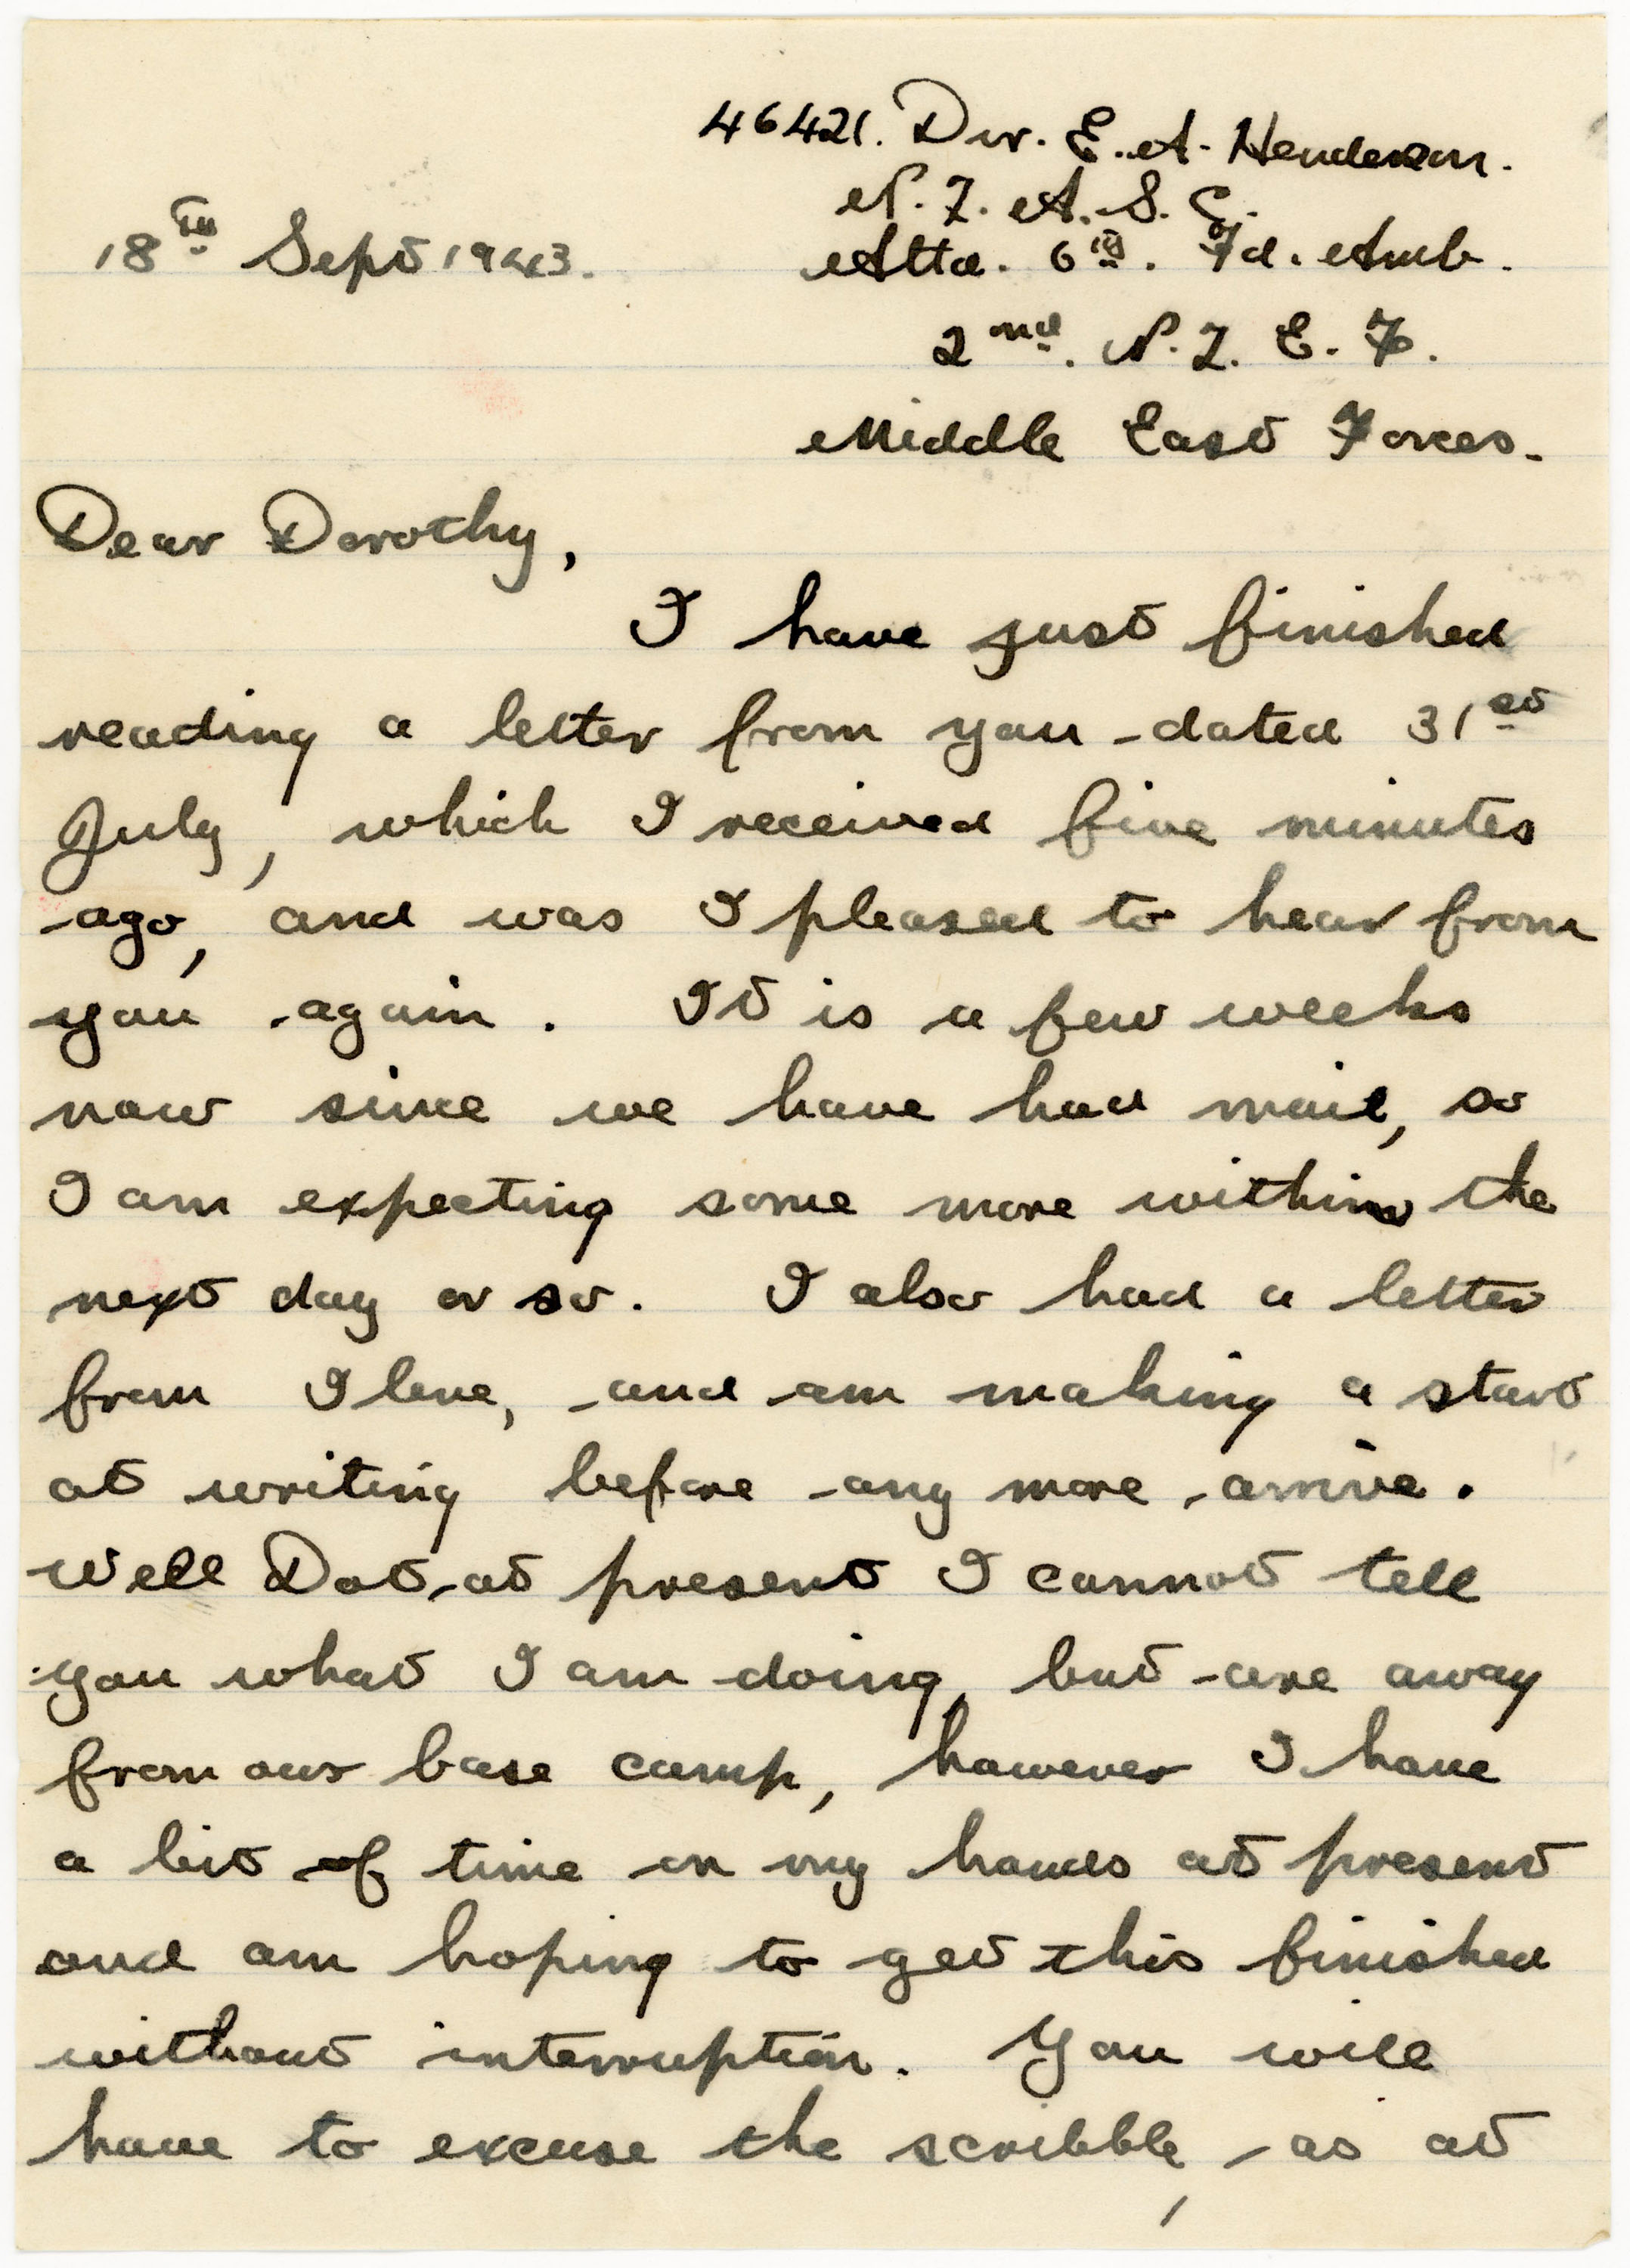 46421. Dvr. E. A. Henderson.
N. Z. A. S. C.
18th Sept 1943.
Attd. 6th. Fd. Amb.
2nd. N. Z. E. F.
Middle East Forces.
Dear Dorothy,
I have just finished
reading a letter from you dated 31st
July, which I received five minutes
ago, and was I pleased to hear from
you again. It is a few weeks
now since we have had mail, so
I am expecting some more within the
next day or so. I also had a letter
from Ilene, and am making a start
at writing before any more arrive.
Well Dot, at present I cannot tell
you what I am doing, but are away
from our base camp, however I have
a bit of time on my hands at present
and am hoping to get this finished
without interruption. You will
have to excuse the scribble, as at